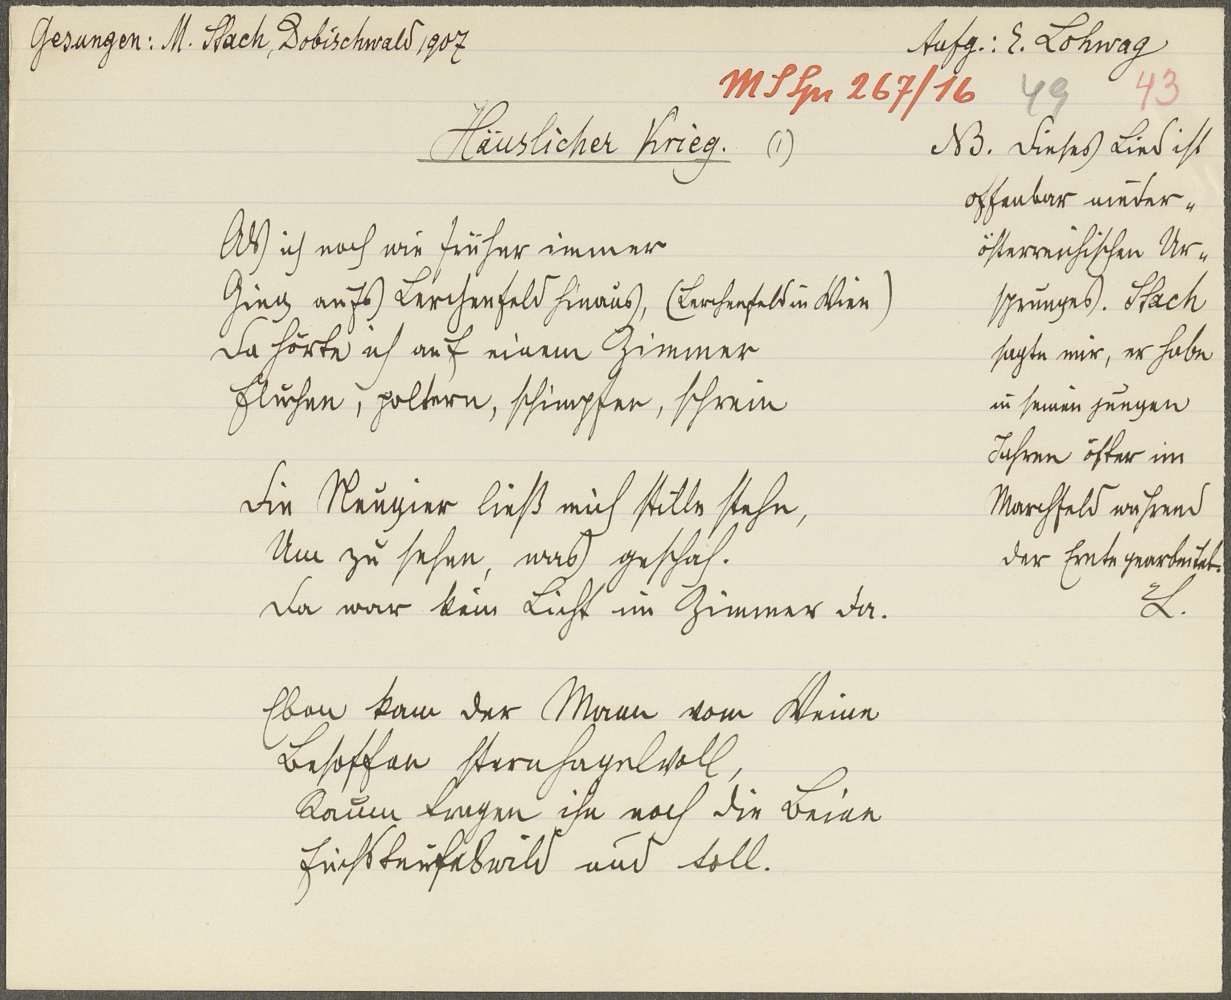 Gesungen: M. Stach, Dobischwald, 1907
Aufg.: E. Lohwag
49 43
Häuslicher Krieg. (1)
Als ich noch wie früher immer
Ging aufs Lerchenfeld hinaus, (Lerchenfeld in Wien)
Da hörte ich auf einem Zimmer
Fluchen, poltern, schimpfen, schrein
Die Neugier ließ mich stille stehn,
Um zu sehen, was geschah.
Da war kein Licht im Zimmer da.
Eben kam der Mann vom Weine
Besoffen sternhagelvoll,
Kaum tragen ihn noch die Beine
Fuchsteufelswild und toll.
NB. Dieses Lied ist
offenbar nieder-
österreichischen Ur-
sprunges. Stach
sagte mir, er habe
in seinen jungen
Jahren öfter im
Marchfeld während
der Ernte gearbeitet.
L.
267/16